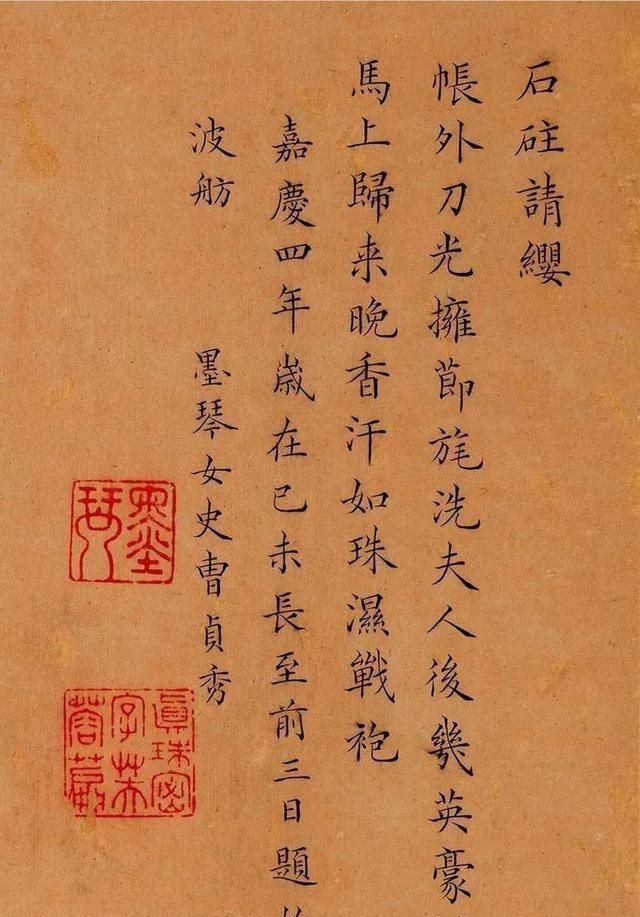 石砫請纓
帳外刀光擁節旄洗夫人後幾英豪
馬上歸来晚香汗如珠濕戰袍
嘉慶四年歲在己未長至前三日題
波舫
墨琴女史曹貞秀
墨琴
真珠密字芙蓉葴